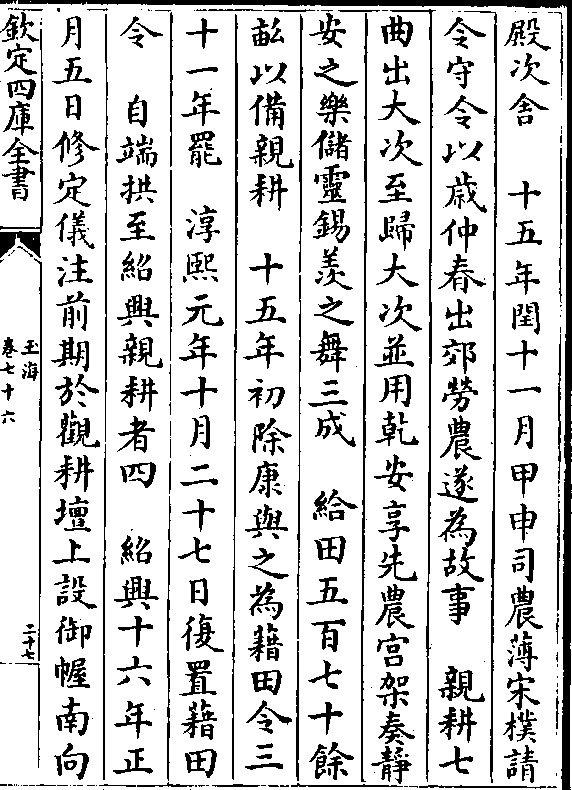 殿次舎　十五年閏十一月甲申司農薄宋樸請
令守令以歳仲春出郊勞農遂為故事　親耕七
曲出大次至歸大次並用乾安享先農宫架奏靜
安之樂儲靈錫羡之舞三成　給田五百七十餘
畝以備親耕　十五年初除康與之為藉田令三
十一年罷　淳熙元年十月二十七日復置藉田
令　自端拱至紹興親耕者四　紹興十六年正
月五日修定儀注前期於觀耕壇上設御幄南向
欽定四庫全書
玉海
卷七十六
二十七